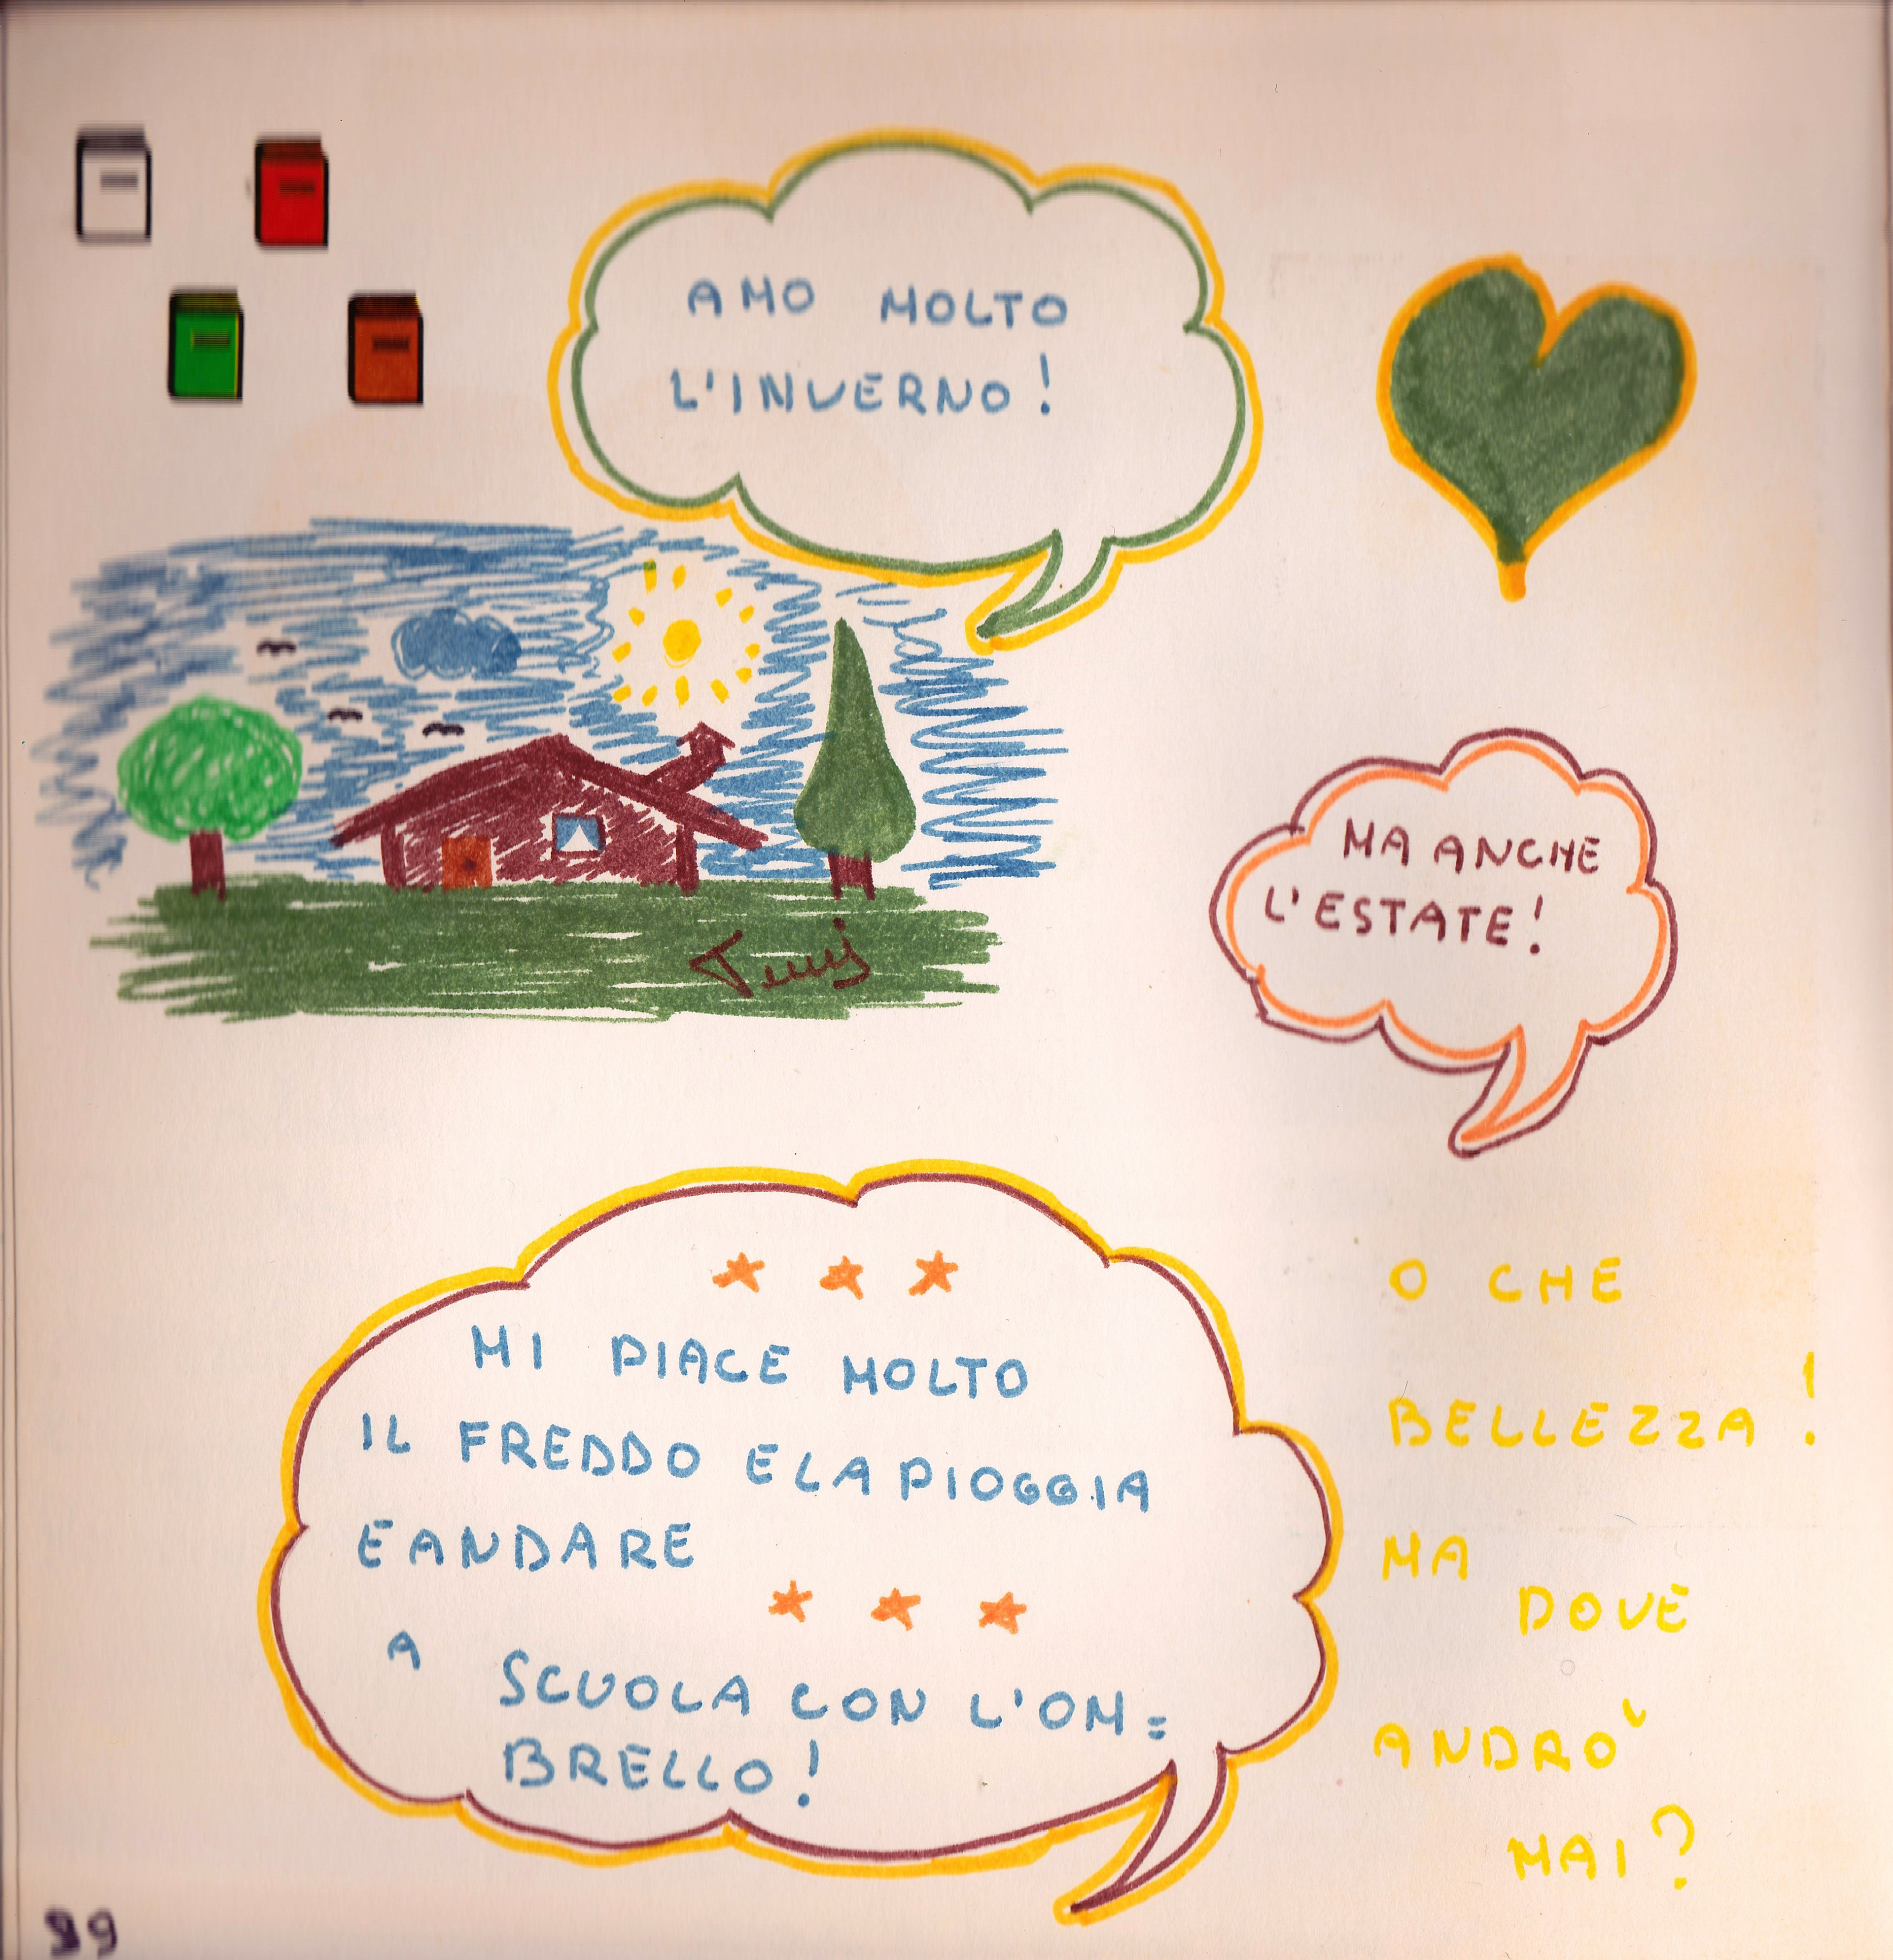 AMO MOLTO
L'INVERNO!
MA ANCHE
L'ESTATE!
MI PIACE MOLTO
IL FREDDO E LA PIOGGIA
E ANDARE
A SCUOLA CON L'OM=
BRELLO!
O CHE
BELLEZZA!
MA
DOVE
ANDRÒ
MAI?